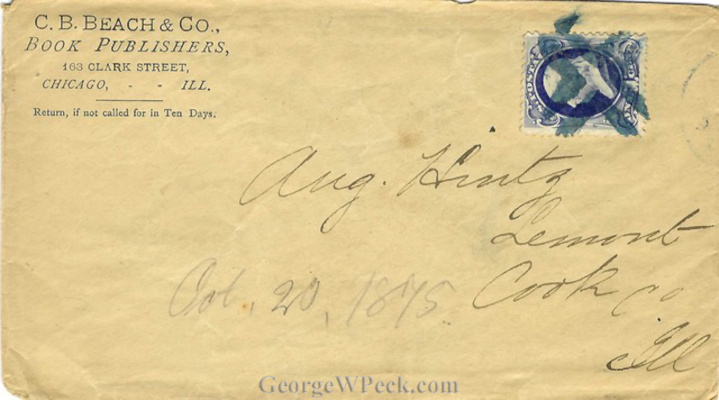 C. B. BEACH & CO.,
BOOK PUBLISHERS,
163 CLARK STREET,
CHICAGO, - - ILL.
Return, if not called for in Ten Days.
Aug. Hintz
Lemont
Cook Co
Ill
Oct. 20, 1875
GeorgeWPeck.com